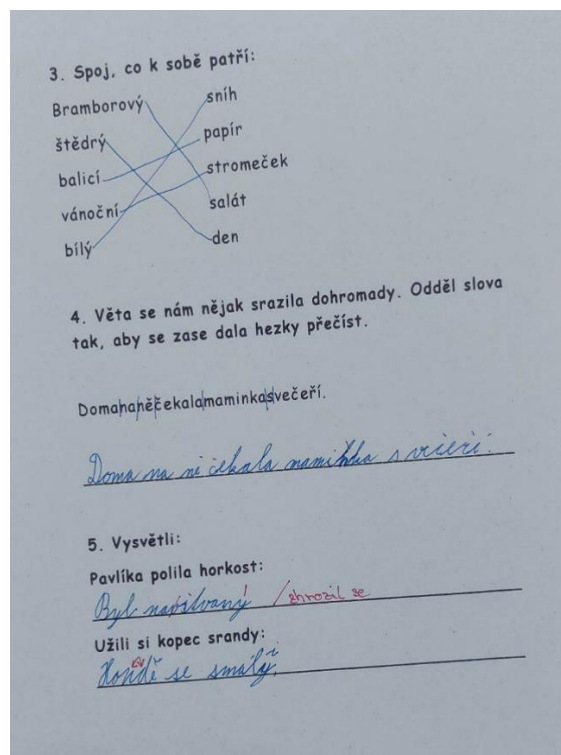 3. Spoj, co k sobě patří:
Bramborový sníh
štědrý papír
balicí stromeček
vánoční salát
bílý den
4. Věta se nám nějak srazila dohromady. Odděl slova
tak, aby se zase dala hezky přečíst.
Domananěčekalamaminkasvečeří.
Doma na ně čekala maminka s večeří.
5. Vysvětli:
Pavlíka polila horkost:
Byl / zhrozil se
Užili si kopec srandy:
se smály.